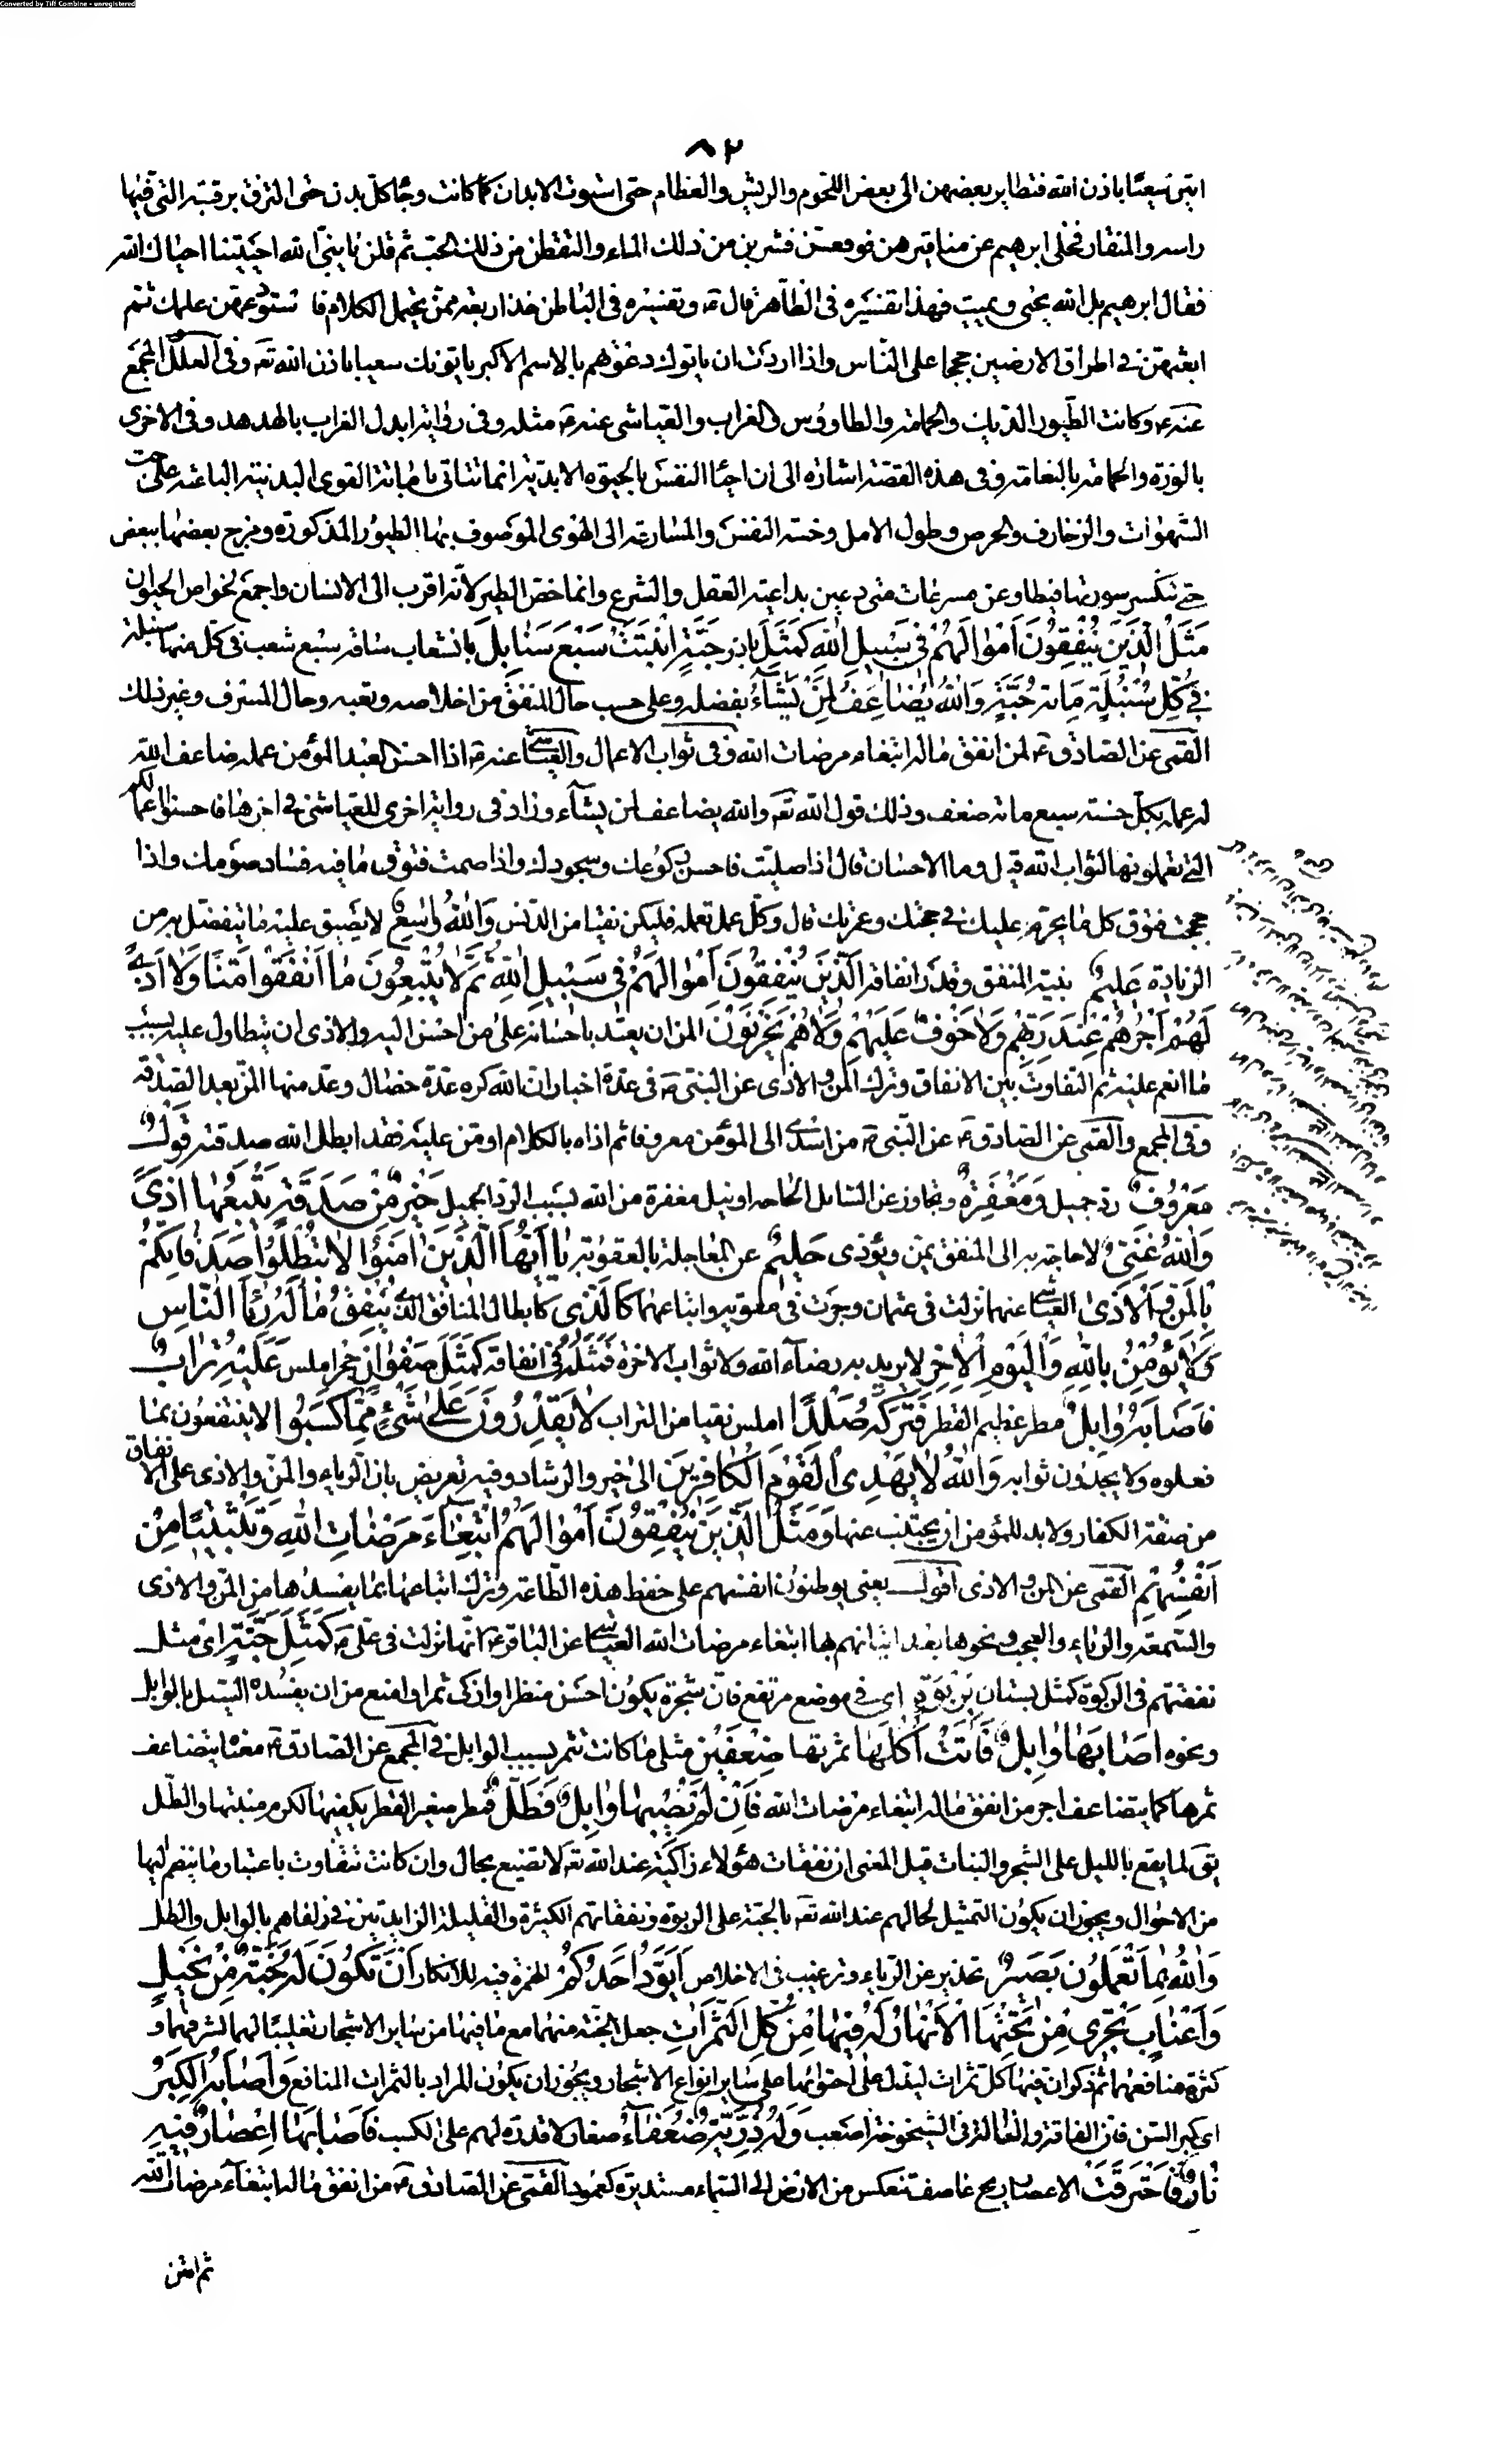 Converted by Tiff Combine - unregistered
٨٢
ايتين سعيا باذن الله فتطاير بعضهن الى بعض اللحوم والريش والعظام حتى استوت الابدان كما كانت وجاء كل بدن حتى التزق برقبته التى فيها
راسه والمنقار فخلى ابرهيم عن مناقيرهن فوقعن فشربن من ذلك الماء والتقطن من ذلك الحب ثم قلن يا نبى الله احييتنا احياك الله
فقال ابرهيم بل الله يحيى ويميت فهذا تفسيره فى الظاهر قال ع وتفسيره فى الباطن خذ اربعة ممن يحتمل الكلام فاستودعهن علمك ثم
ابعثهن فى اطراف الارضين حججا على الناس واذا اردت ان ياتوك دعوتهم بالاسم الاكبر ياتونك سعيا باذن الله تع وفى العلل المجمع
عنه ع وكانت الطيور الديك والحمامة والطاووس والغراب والعياشى عنه ع مثله وفى رواية ابدل الغراب بالهدهد وفى الاخرى
بالوزة والحمامة بالنعامة وفى هذه القصة اشارة الى ان احياء النفس بالحيوة الابدية انما يتاتى باماتة القوى البدنية الباعثة على حب
الشهوات والزخارف والحرص وطول الامل وخسة النفس والمسارعة الى الهوى الموصوف بها الطيور المذكورة ومزج بعضها ببعض
حتى تنكسر سورتها فيطاوعن مسرعات متى دعين بداعية العقل والشرع وانما خص الطير لانه اقرب الى الانسان واجمع لخواص الحيوان
مَثَلُ الَّذينَ يُنْفِقُونَ اَمْوالَهُمْ فى سَبيلِ اللهِ كَمَثَلِ باذر حَبَّةٍ اَنْبَتَتْ سَبْعَ سَنابِلَ بانشعاب ساقه سبع شعب فى كل منها سنبلة
فى كُلِّ سُنْبُلَةٍ مِائَةُ حَبَّةٍ وَاللهُ يُضاعِفُ لِمَنْ يَشآءُ بفضله وعلى حسب حال المنفق من اخلاصه وتعبه وحال المصرف وغير ذلك
القمى عن الصادق ع لمن انفق ماله ابتغاء مرضات الله وفى ثواب الاعمال والعياشى عنه ع اذا احسن العبد المؤمن عمله ضاعف الله
له عمله بكل حسنة سبع مائة ضعف وذلك قول الله تع والله يضاعف لمن يشآء وزاد فى رواية اخرى للعياشى فى اخرها فاحسنوا اعمالكم
التى تعملونها لثواب الله قيل وما الاحسان قال اذا صليت فاحسن ركوعك وسجودك واذا صمت فتوق ما فيه فساد صومك واذا
حججت فتوق كل ما يحرم عليك فى حجتك وعمرتك قال وكل عمل تعمله فليكن نقيا من الدنس وَاللهُ واسِعٌ لا يضيق عليه ما يتفضل به من
الزيادة عَليمٌ بنية المنفق وقدر انفاقه اَلَّذينَ يُنْفِقُونَ اَمْوالَهُمْ فى سَبيلِ اللهِ ثُمَّ لا يُتْبِعُونَ ما اَنْفَقُوا مَنًّا وَلا اَذًى
لَهُمْ اَجْرُهُمْ عِنْدَ رَبِّهِمْ وَلا خَوْفٌ عَلَيْهِمْ وَلا هُمْ يَحْزَنُونَ المن ان يعتد باحسانه على من احسن اليه والاذى ان يتطاول عليه بسبب
ما انعم عليه ثم التفاوت بين الانفاق وترك المن والاذى عن النبى ص فى عدة اخبار ان الله كره عدة خصال وعد منها المن بعد الصدقة
وفى المجمع والقمى عن الصادق ع عن النبى ص من اسدى الى المؤمن معروفا ثم اذاه بالكلام او من عليه فقد ابطل الله صدقته قَوْلٌ
مَعْرُوفٌ رد جميل وَمَغْفِرَةٌ وتجاوز عن السائل الحاحه او نيل مغفرة من الله بسبب الرد الجميل خَيْرٌ مِنْ صَدَقَةٍ يَتْبَعُها اَذًى
وَاللهُ غَنِىٌّ لا حاجة به الى المنفق يمن ويؤذى حَليمٌ عن المعاجلة بالعقوبة يا اَيُّهَا الَّذينَ امَنُوا لا تُبْطِلُوا صَدَقاتِكُمْ
بِالْمَنِّ وَالْاَذى العياشى عنهما نزلت فى عثمان وجرت فى معوية واتباعهما كَالَّذى كابطال المنافق الذى يُنْفِقُ مالَهُ رِئآءَ النّاسِ
وَلا يُؤْمِنُ بِاللهِ وَالْيَوْمِ الْاخِرِ لا يريد به رضاء الله ولا ثواب الاخرة فَمَثَلُهُ فى انفاقه كَمَثَلِ صَفْوانٍ حجر املس عَلَيْهِ تُرابٌ
فَاَصابَهُ وابِلٌ مطر عظيم القطر فَتَرَكَهُ صَلْدًا املس نقيا من التراب لا يَقْدِرُونَ عَلى شَىْءٍ مِمّا كَسَبُوا لا ينتفعون بما
فعلوه ولا يجدون ثوابه وَاللهُ لا يَهْدِى الْقَوْمَ الْكافِرينَ الى خير والرشاد وفيه تعريض بان الرياء والمن والاذى على الانفاق
من صفة الكفار ولابد للمؤمن ان يجتنب عنها وَمَثَلُ الَّذينَ يُنْفِقُونَ اَمْوالَهُمُ ابْتِغآءَ مَرْضاتِ اللهِ وَتَثْبيتًا مِنْ
اَنْفُسِهِمْ القمى عن المن والاذى اقول يعنى يوطنون انفسهم على حفظ هذه الطاعة وترك اتباعها بما يفسدها من المن والاذى
والسمعة والرياء والعجب ونحوها بعد اتيانهم بها ابتغاء مرضات الله العياشى عن الباقر ع انها نزلت فى على ع كَمَثَلِ جَنَّةٍ اى مثل
نفقتهم فى الزكوة كمثل بستان بِرَبْوَةٍ اى فى موضع مرتفع فان شجرة يكون احسن منظرا وازكى ثمرا وامنع من ان يفسده السيل بالوابل
ونحوه اَصابَها وابِلٌ فَاتَتْ اُكُلَها ثمرتها ضِعْفَيْنِ مثلى ما كانت تثمر بسبب الوابل فى المجمع عن الصادق ع معناه يتضاعف
ثمرها كما يتضاعف اجر من انفق ماله ابتغاء مرضات الله فَاِنْ لَمْ يُصِبْها وابِلٌ فَطَلٌّ فمطر صغير القطر يكفيها لكرم منبتها والطل
يق لما يقع بالليل على الشجر والنبات قيل المعنى ان نفقات هؤلاء زاكية عند الله تع لا تضيع بحال وان كانت تتفاوت باعتبار ما ينضم اليها
من الاحوال ويجوز ان يكون التمثيل لحالهم عند الله تع بالجنة على الربوة ونفقاتهم الكثيرة والقليلة الزايدتين فى زلفاهم بالوابل والطل
وَاللهُ بِما تَعْمَلُونَ بَصيرٌ تحذير عن الرياء وترغيب فى الاخلاص اَيَوَدُّ اَحَدُكُمْ الهمزة فيه للانكار اَنْ تَكُونَ لَهُ جَنَّةٌ مِنْ نَخيلٍ
وَاَعْنابٍ تَجْرى مِنْ تَحْتِهَا الْاَنْهارُ لَهُ فيها مِنْ كُلِّ الثَّمَراتِ جعل الجنة منهما مع ما فيها من ساير الاشجار تغليبا لهما لشرفهما و
كثرة منافعهما ثم ذكر ان فيها كل ثمرات ليدل على احتوائها على ساير انواع الاشجار ويجوز ان يكون المراد بالثمرات المنافع وَاَصابَهُ الْكِبَرُ
اى كبر السن فان الفاقة والعالة فى الشيخوخة اصعب وَلَهُ ذُرِّيَّةٌ ضُعَفآءُ صغار لا قدرة لهم على الكسب فَاَصابَها اِعْصارٌ فيهِ
نارٌ فَاحْتَرَقَتْ الاعصار ريح عاصف تنعكس من الارض الى السماء مستديرة كعمود القمى عن الصادق ع من انفق ماله ابتغآء مرضات الله
ثم امتن